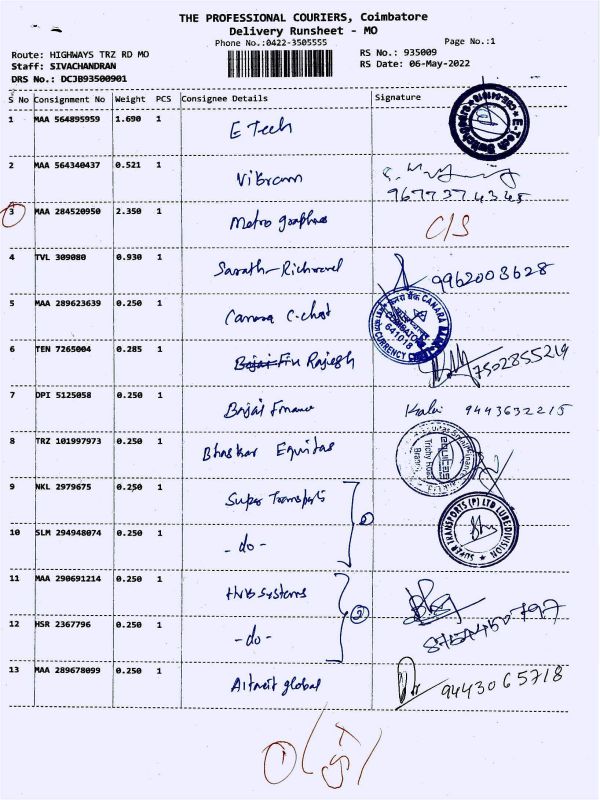 THE PROFESSIONAL COURIERS, Coimbatore
Delivery Runsheet - MO
Phone No.:0422-3505555 Page No.:1
Route: HIGHWAYS TRZ RD MO RS No.: 935009
Staff: SIVACHANDRAN RS Date: 06-May-2022
DRS No.: DCJB93500901
S No Consignment No Weight PCS Consignee Details Signature
1 MAA 564895959 1.690 1 E Tech
2 MAA 564340437 0.521 1 Vikram
9677374345
3 MAA 284520950 2.350 1 Metro C/S
4 TVL 309080 0.930 1 Sarath- 9962003628
5 MAA 289623639 0.250 1 Canara C.chest
CANARA
641018
CURRENCY
6 TEN 7265004 0.285 1 Bajaj Fin Rajesh 7502855219
7 DPI 5125058 0.250 1 Bajaj Finance Kalai 9443632215
8 TRZ 101997973 0.250 1 Bhaskar Equitas
equitas
Trichy Road
9 NKL 2979675 0.250 1 Super Transports
SUPER TRANSPORTS (P) LTD LUBE DIVISION
10 SLM 294948074 0.250 1 -do-
11 MAA 290691214 0.250 1 systems
8754450797
12 HSR 2367796 0.250 1 -do-
13 MAA 289678099 0.250 1 global 9443065718